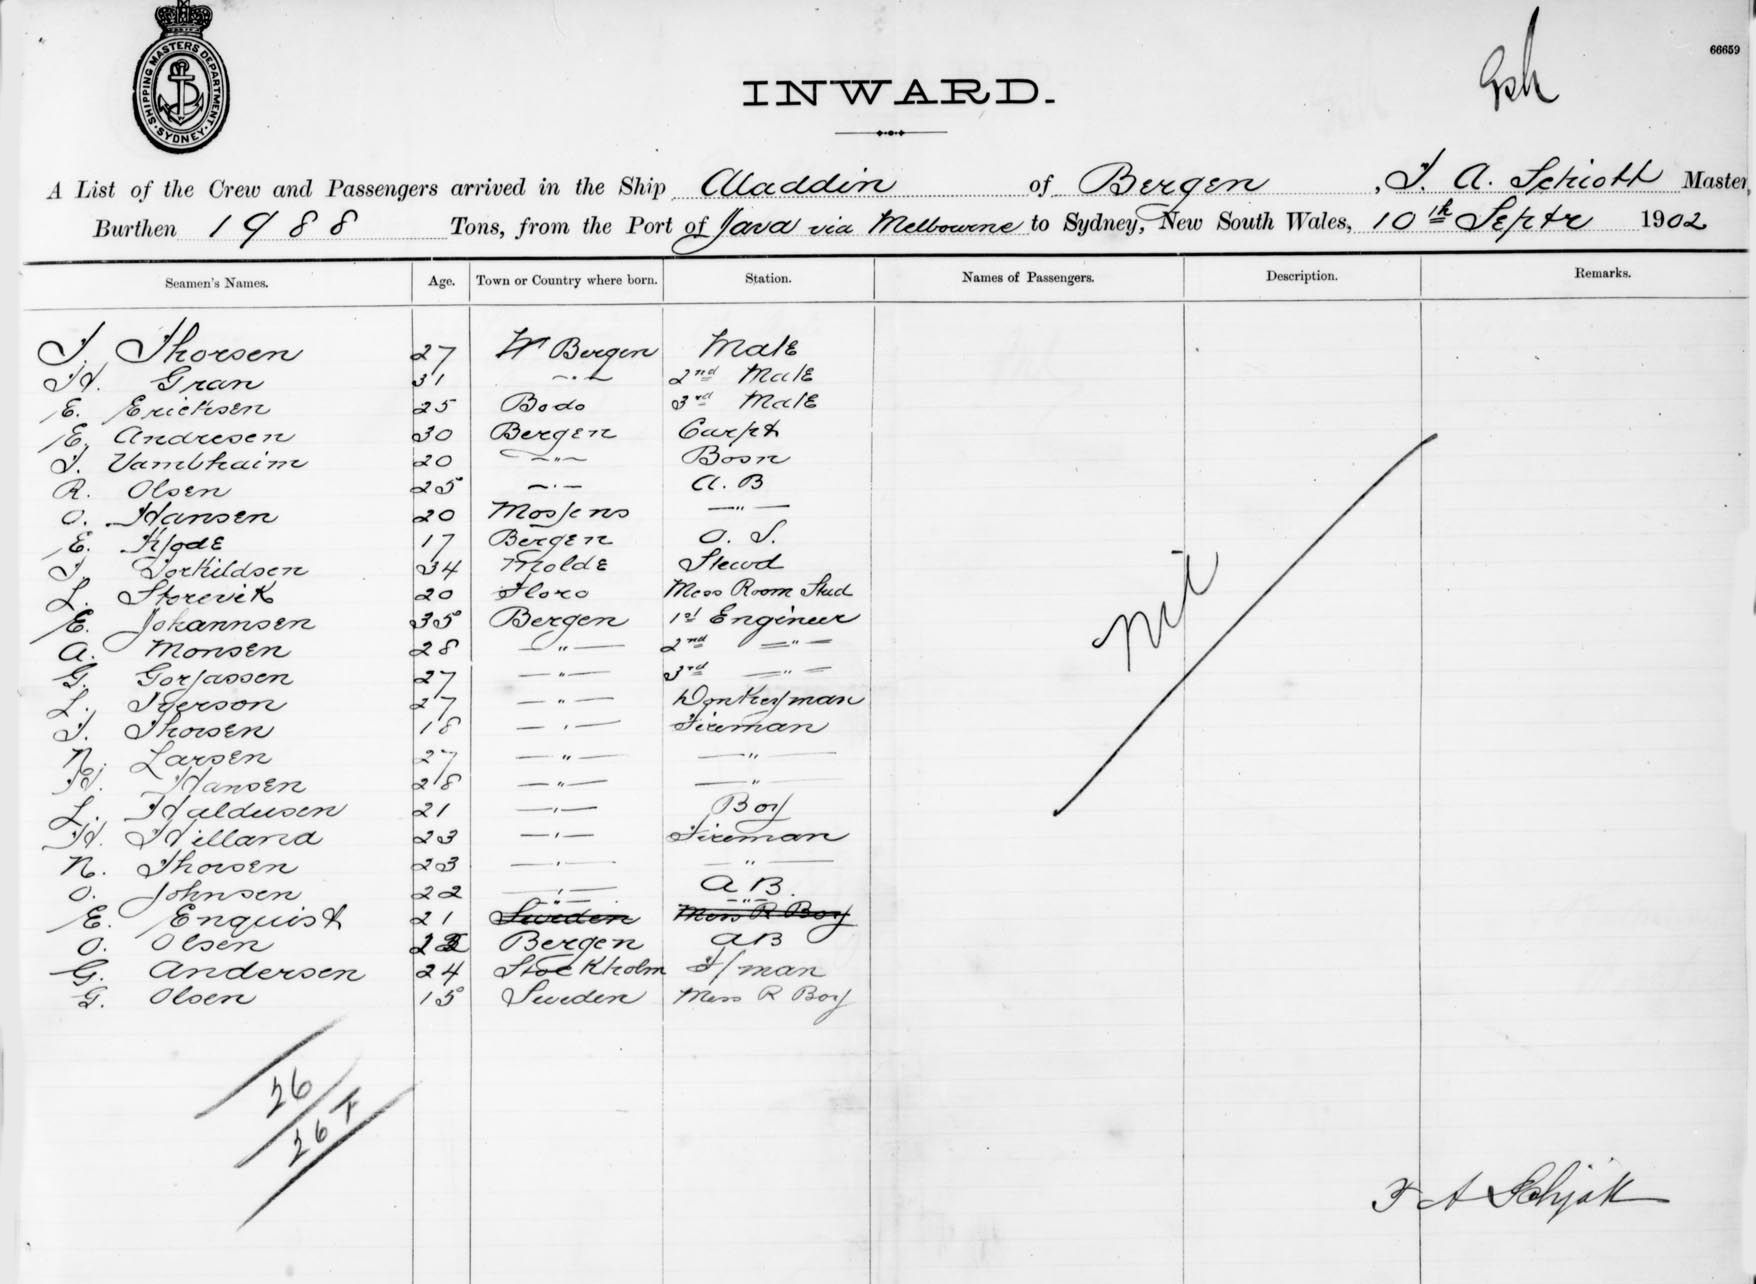 SHIPPING MASTERS DEPARTMENT. SYDNEY
66659
INWARD.
A List of the Crew and Passengers arrived in the Ship Aladdin of Bergen, T. A. Schiott Master,
Burthen 1988 Tons, from the Port of Java via Melbourne to Sydney, New South Wales, 10th Septr 1902
Seamen's Names. Age. Town or Country where born. Station. Names of Passengers. Description. Remarks.
T. Thorsen 27 Bergen Mate
H. Gran 31 —·— 2nd Mate
E. Ericksen 25 Bodo 3rd Mate
E. Andresen 30 Bergen Carpt
T. 20 —"— Bosn
R. Olsen 25 —·— A. B
O. Hansen 20 —"—
E. 17 Bergen O. S.
T. Torkildsen 34 Molde Stewd
L. Storevik 20 Floro Mess Room Stud
E. Johannsen 35 Bergen 1st Engineer
A. Monsen 28 —"— 2nd —"—
G. 27 —"— 3rd —"—
L. 27 —"— Donkeyman
T. Thorsen 18 —"— Fireman
N. Larsen 27 —"— —"—
H. Hansen 28 —"— —"—
L. Haldusen 21 —"— Boy
H. Hilland 23 —"— Fireman
N. Thorsen 23 —"— —"—
O. Johnsen 22 —"— A B.
E. Enquist 21 —"— Sweden —"— Mess R Boy
O. Olsen Bergen AB
G. Andersen 24 Stockholm F/man
G. Olsen 15 Sweden Mess R Boy
Nil
26
26